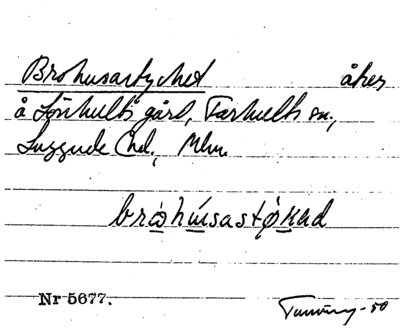 Brohusastycket åker
å Lönhults gård, Farhults sn,
Luggude hd., Mlm.
brøshúsastø̜kad
Nr 5677.
-50